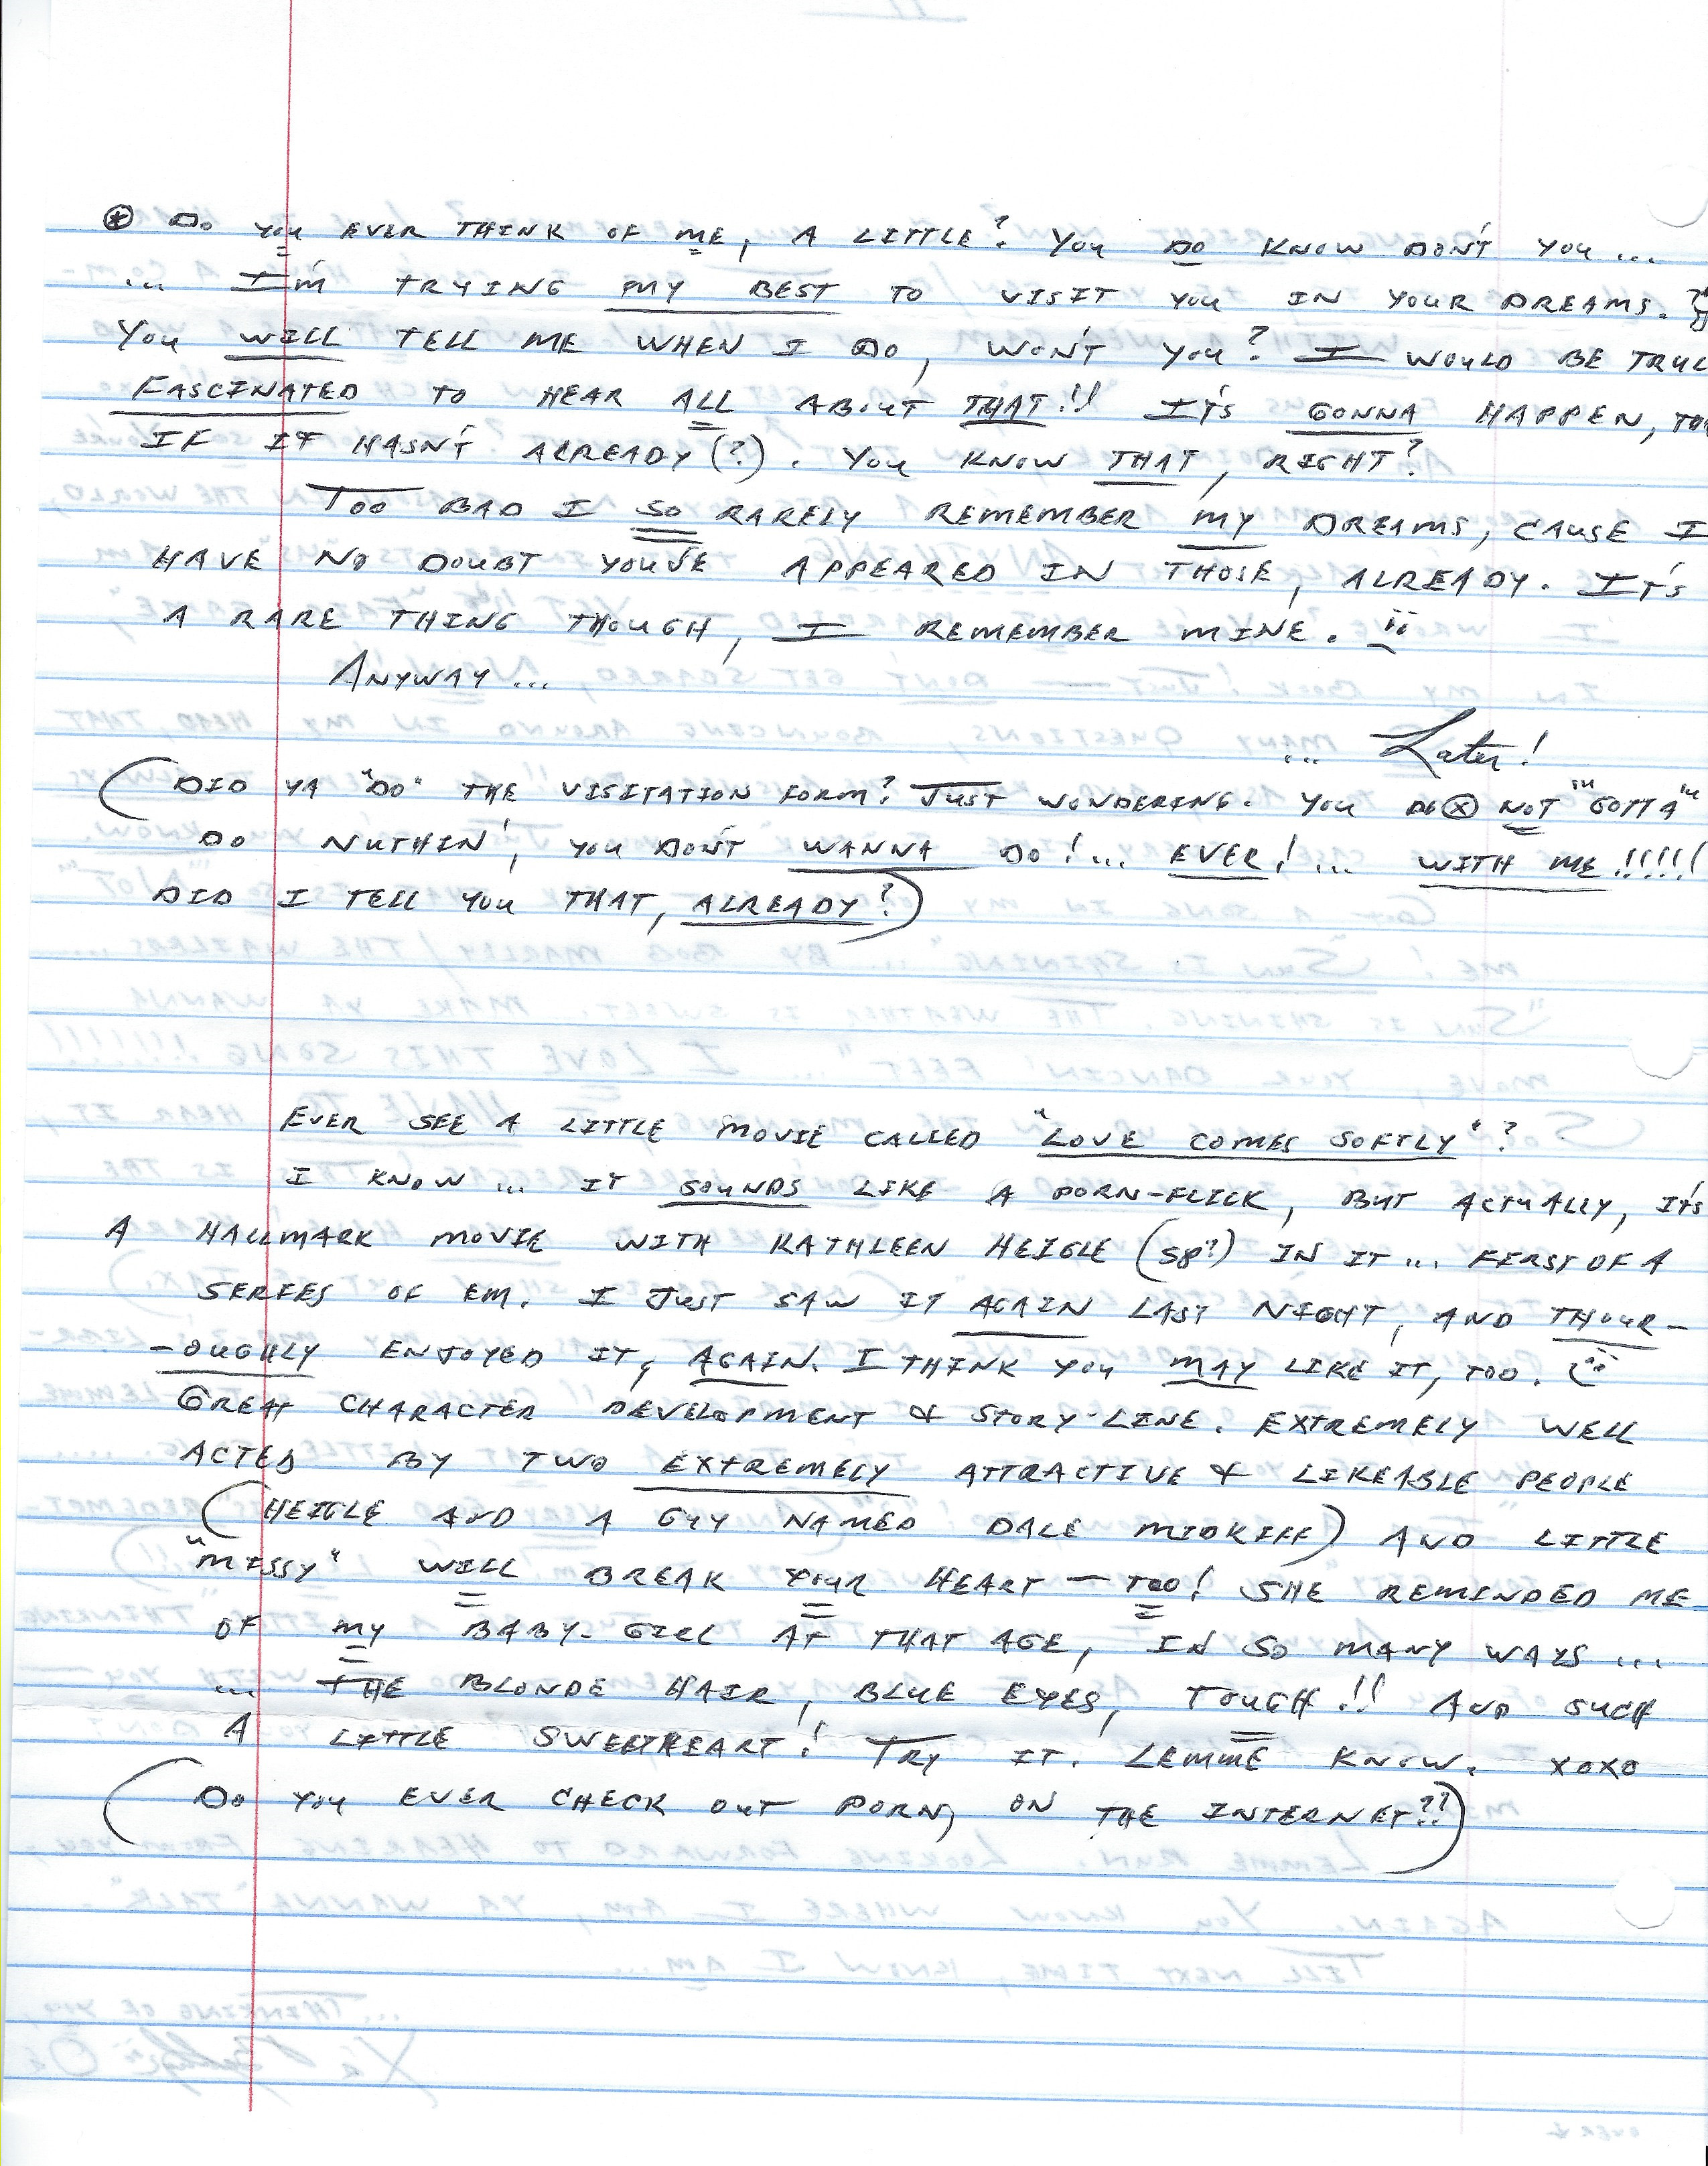 ⊛ Do you EVER THINK OF ME, A LITTLE? YOU DO KNOW DON'T YOU ...
... I'M TRYING MY BEST TO VISIT YOU IN YOUR DREAMS.
YOU WILL TELL ME WHEN I DO, WON'T YOU? I WOULD BE TRUL
FASCINATED TO HEAR ALL ABOUT THAT!! IT'S GONNA HAPPEN, TOO
IF IT HASN'T ALREADY (?). YOU KNOW THAT, RIGHT?
TOO BAD I SO RARELY REMEMBER MY DREAMS, CAUSE I
HAVE NO DOUBT YOU'VE APPEARED IN THOSE, ALREADY. IT'S
A RARE THING THOUGH, I REMEMBER MINE.
ANYWAY ...
... Later!
(DID YA "DO" THE VISITATION FORM? JUST WONDERING. YOU DO NOT "GOTTA"
DO NUTHIN', YOU DON'T WANNA DO!... EVER!... WITH ME!!!!!
DID I TELL YOU THAT, ALREADY?)
EVER SEE A LITTLE MOVIE CALLED "LOVE COMES SOFTLY"?
I KNOW ... IT SOUNDS LIKE A PORN-FLICK, BUT ACTUALLY, IT'S
A HALLMARK MOVIE WITH KATHLEEN HEIGLE (SP?) IN IT ... FIRST OF A
SERIES OF EM. I JUST SAW IT AGAIN LAST NIGHT, AND THOUR-
-OUGHLY ENJOYED IT, AGAIN. I THINK YOU MAY LIKE IT, TOO.
GREAT CHARACTER DEVELOPMENT & STORY-LINE. EXTREMELY WELL
ACTED BY TWO EXTREMELY ATTRACTIVE & LIKEABLE PEOPLE
(HEIGLE AND A GUY NAMED DALE MIDKIFF) AND LITTLE
"MISSY" WILL BREAK YOUR HEART — TOO! SHE REMINDED ME
OF MY BABY-GIRL AT THAT AGE, IN SO MANY WAYS ...
... THE BLONDE HAIR, BLUE EYES, TOUGH!! AND SUCH
A LITTLE SWEETHEART! TRY IT. LEMME KNOW. XOXO
(DO YOU EVER CHECK OUT PORN, ON THE INTERNET??)